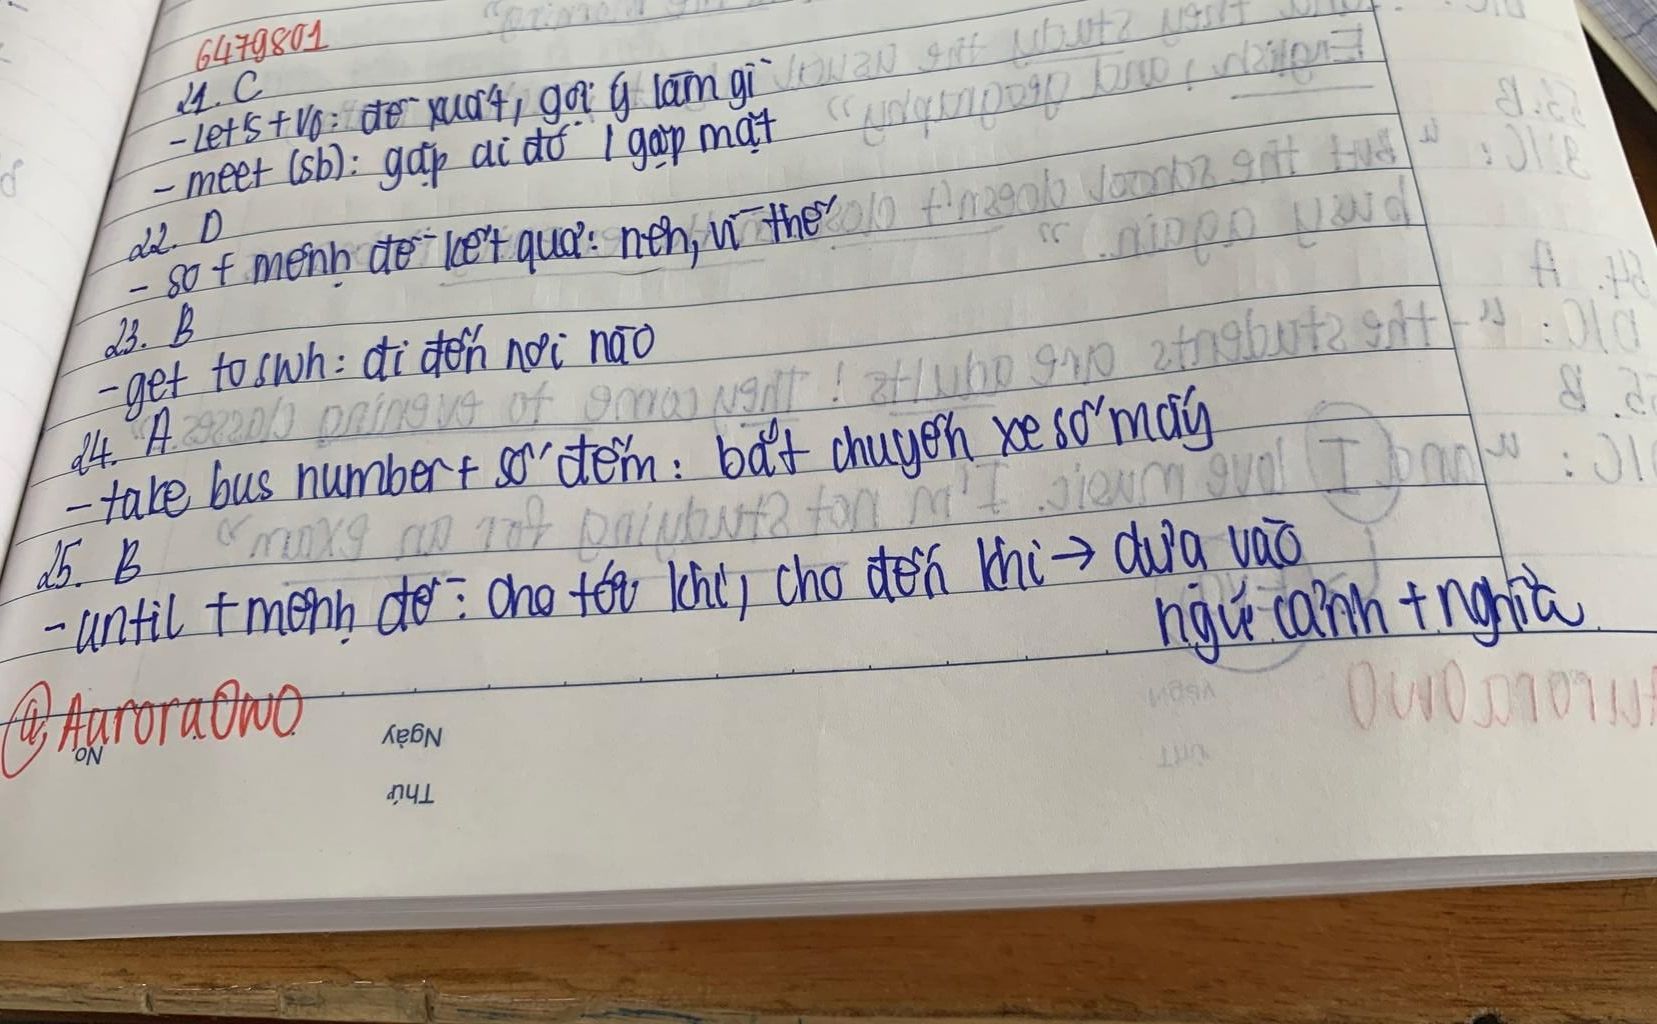 6479801
21. C
- Let's + V0: đề xuất, gợi ý làm gì
- meet (sb): gặp ai đó / gặp mặt
22. D
- so + mệnh đề kết quả: nên, vì thế
23. B
- get to swh: đi đến nơi nào
24. A
- take bus number + số đếm: bắt chuyến xe số mấy
25. B
- until + mệnh đề: cho tới khi, cho đến khi → dựa vào
ngữ cảnh + nghĩa
@AuroraOwO
No
Ngày
Thứ